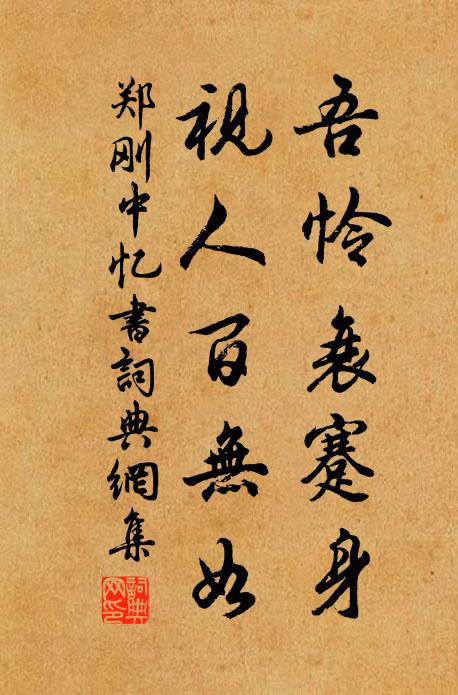 吾怜衰蹇身
视人百無如
郑刚中忆書詞典網集
詞典網印